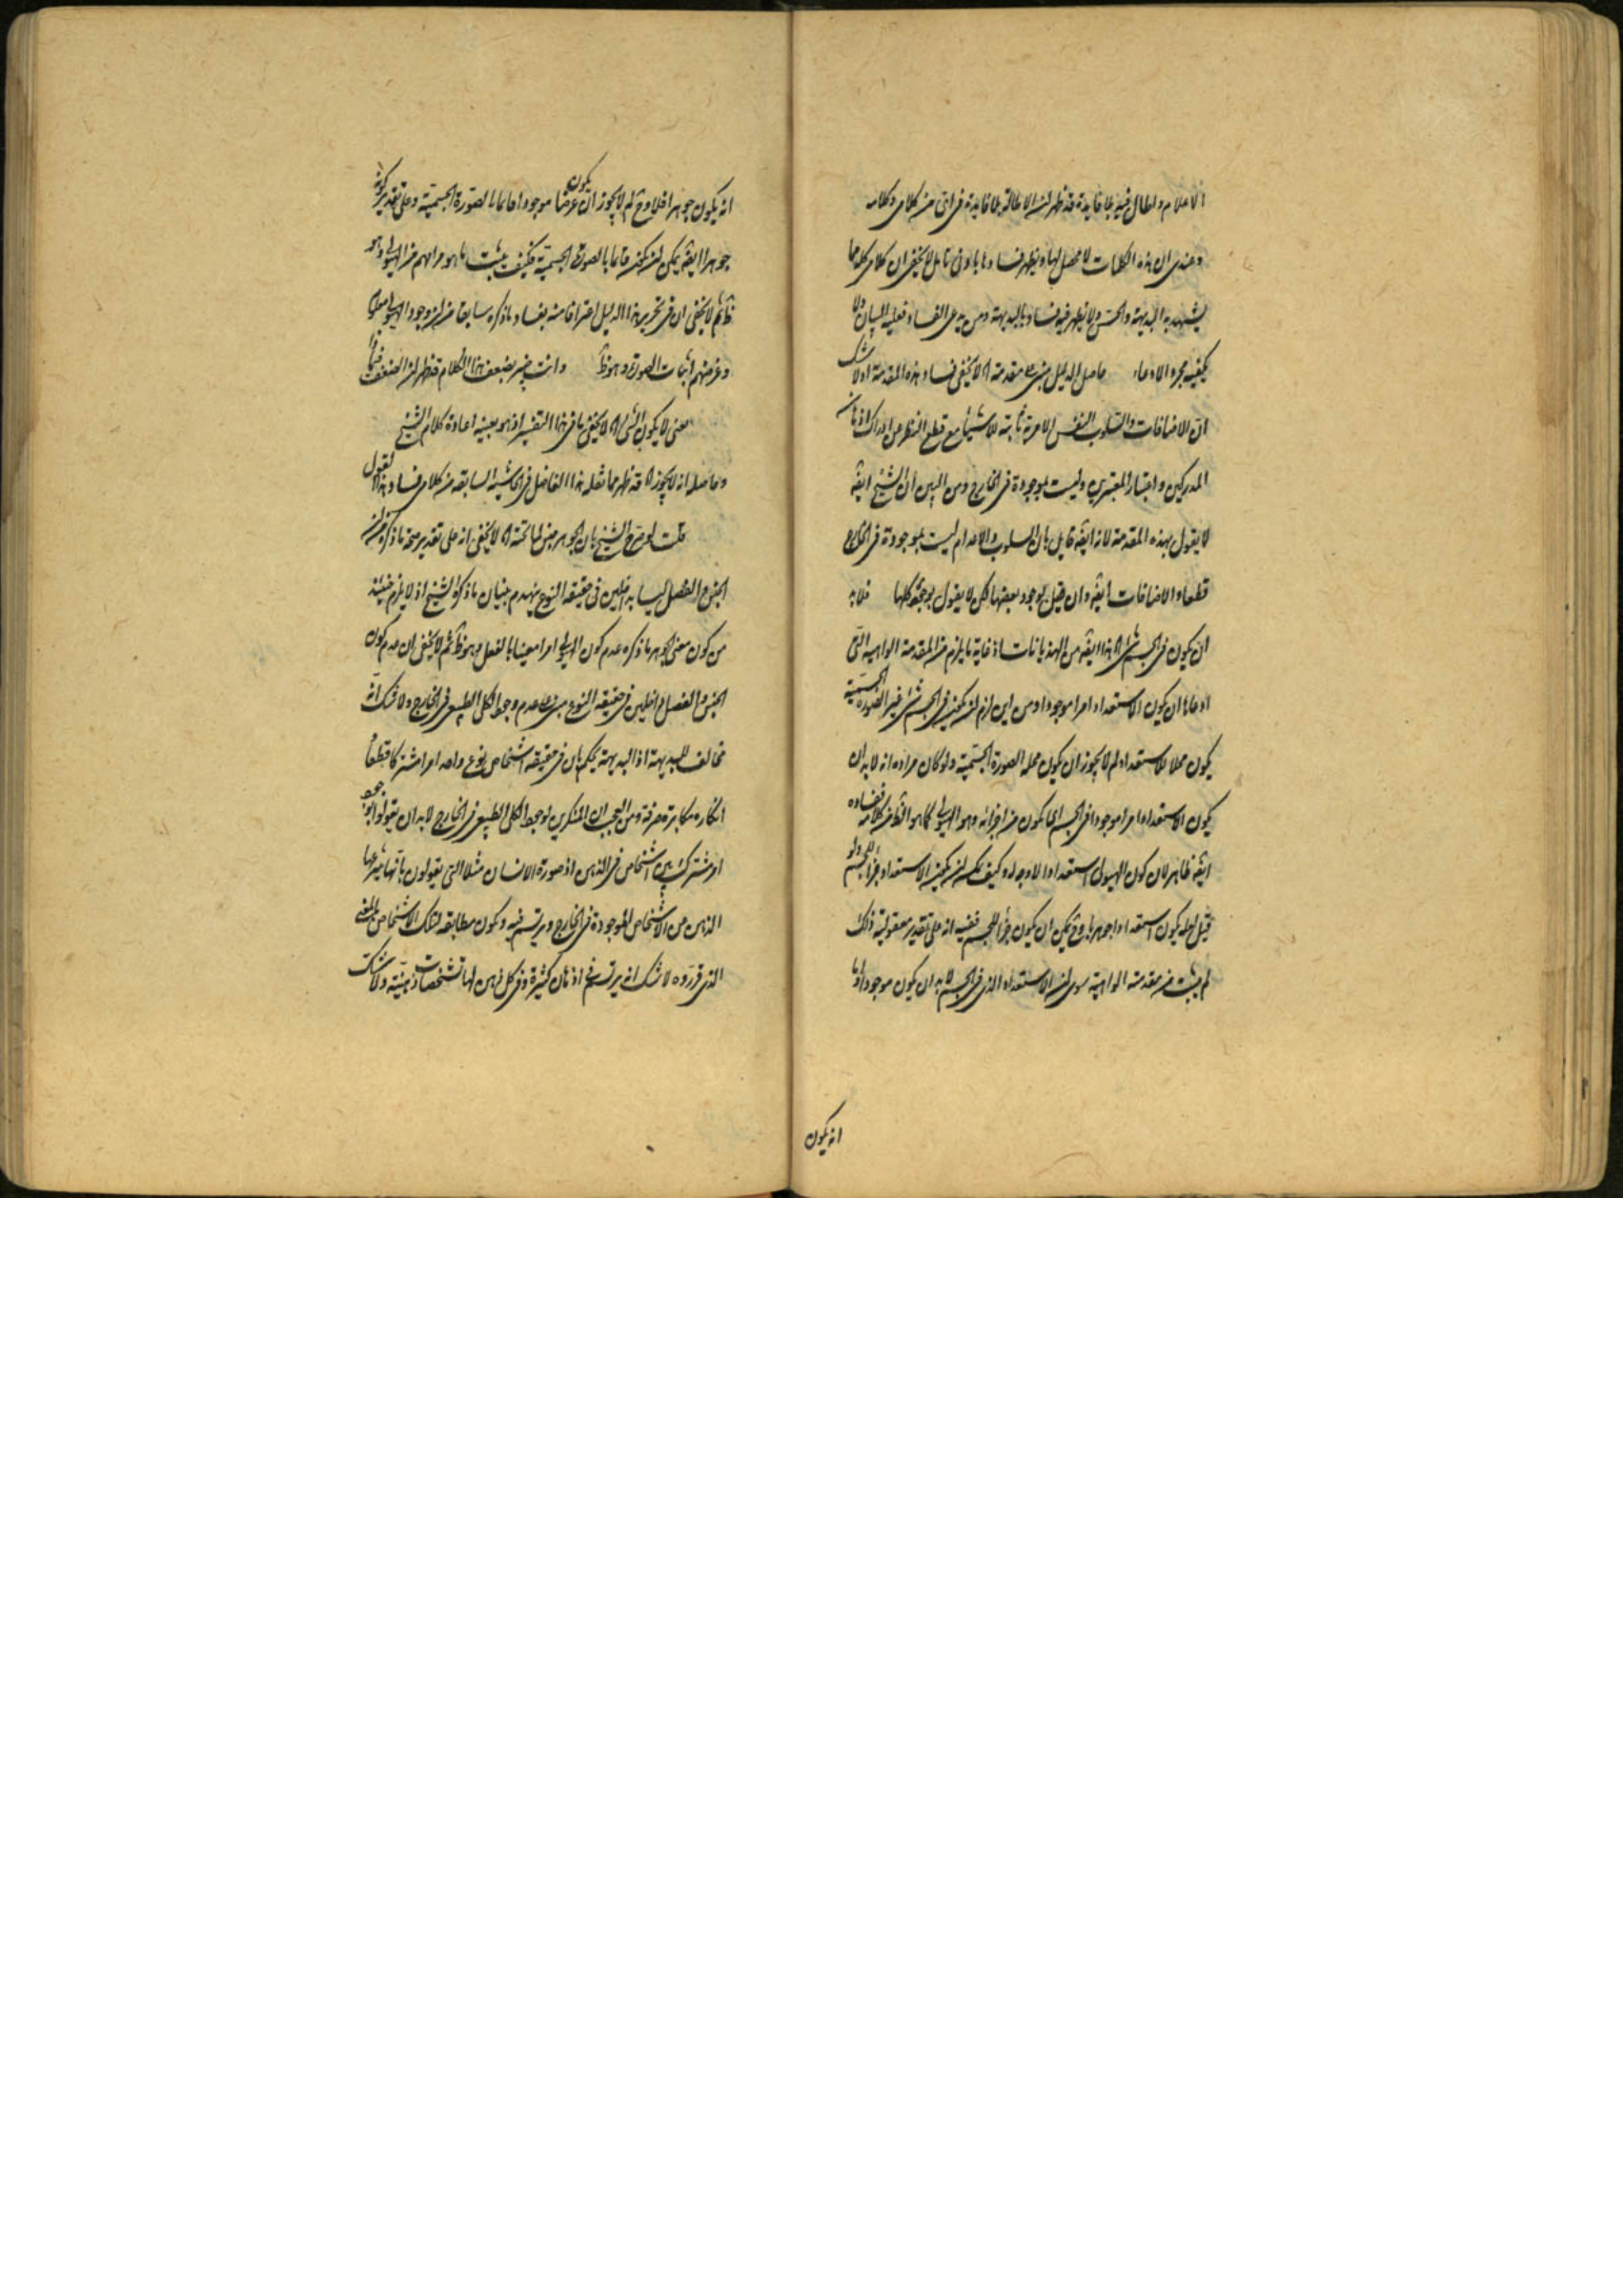 الاعلام واطال فيه بلا فايدة قد ظهر ان الاطالة بلا فايدة في اتى من كلامى وكلامه
وعندى ان هذه الكلمات لا محصل لها ويظهر فسادها بادنى تامل لا يخفى ان كلامى كله مما
يشهد به البديهة والحس ولا يظهر فيه فساد بالبديهة ومن يدعى الفساد فعليه البيان ولا
يكفيه مجرد الادعاء حاصل الدليل مبنى على مقدمة اه لا يخفى فساد هذه المقدمة اذ لا شك
ان الاضافات والسلوب النفس الامرية ثابتة للاشياء مع قطع النظر عن ادراك اذهان
المدركين واعتبار المعتبرين وليست بموجودة في الخارج ومن البين ان الشيخ ايضا
لا يقول بهذه المقدمة لانه ايضا قايل بان السلوب والاعدام ليست بموجودة في الخارج
قطعا والاضافات ايضا وان قيل بوجود بعضها لكن لا يقول بوجود كلها فلا بد
ان يكون في الجسم شى اه هذا ايضا من الهذيانات اذ غاية ما يلزم من المقدمة الواهية التى
ادعاها ان يكون الاستعداد امرا موجودا ومن اين لزم ان يكون في الجسم شى غير الصورة الجسمية
يكون محلا للاستعداد لم لا يجوز ان يكون محله الصورة الجسمية ولو كان مراده انه لا بد ان
يكون الاستعداد امرا موجودا في الجسم اى يكون من اجزائه وهو الهيولى كما هو الظ من كلامه ففساده
ايضا ظاهر لان كون الهيولى استعدادا لا وجه له وكيف يمكن ان يكون الاستعداد جزأ للجسم ولو
قيل لعله يكون استعدادا جوهريا وح يمكن ان يكون جزأ للجسم ففيه انه على تقدير معقولية ذلك
لم يثبت من مقدمته الواهية سوى ان الاستعداد الذى في الجسم لا بد ان يكون موجودا واما
انه يكون
انه يكون جوهرا فلا وح لم لا يجوز ان يكون عرضا موجودا قايما بالصورة الجسمية وعلى تقدير كونه
جوهرا ايضا يمكن ان يكون قايما بالصورة الجسمية فكيف يثبت ما هو مرامهم من الهيولى وهو
ظ ثم لا يخفى ان في تحرير هذا الدليل اعترافا منه بفساد ما ذكره سابقا من ان وجود الهيولى معلوم
وغرضهم اثبات الصورة وهو ظ وانت خبير بضعف هذا الكلام قد ظهر ان الضعف فيما ذا
معنى لا يكون الشى اه لا يخفى ما في هذا التفسير اذ هو بعينه اعادة كلام الشيخ
وحاصله انه لا يجوز اه قد ظهر مما نقله هذا الفاضل في الحاشية السابقة من كلامى فساد هذا القول
قلت لو صرح الشيخ بان الجوهر جنس لما تحته اه لا يخفى انه على تقدير صحة ما ذكره من ان
الجنس والفصل ليسا بداخلين في حقيقة النوع ينهدم بنيان ما ذكره الشيخ اذ لا يلزم حينئذ
من كون معنى الجوهر ما ذكره عدم كون الهيولى امرا معينا بالفعل وهو ظ ثم لا يخفى ان عدم كون
الجنس والفصل داخلين في حقيقة النوع مبنى على عدم وجود الكلى الطبيعى في الخارج ولا شك انه
مخالف للبديهة اذ البديهة يحكم بان في حقيقة اشخاص نوع واحد امرا مشتركا قطعا
انكاره مكابرة صرفة ومن العجب ان المنكرين لوجود الكلى الطبيعى في الخارج لا بد ان يقولوا بوجود
امر مشترك بين اشخاص في الذهن اذ صورة الانسان مثلا التى يقولون بانها ينتزعها
الذهن من الاشخاص الموجودة في الخارج ويرتسم فيه ويكون مطابقه لتلك الاشخاص بالمعنى
الذى قرروه لا شك انه يرتسم في اذهان كثيرة وفى كل ذهن لها تشخصات ذهنية ولا شك